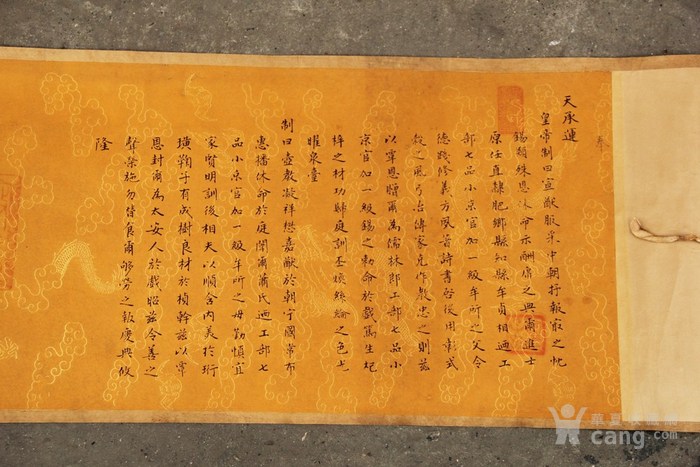 奉
天承運
皇帝制曰宣猷服采中朝抒報最之忱
錫類殊恩休命示酬庸之典爾進士
原任直隸肥鄉縣知縣牟貞相迺工
部七品小京官加一級牟所之父令
德踐修義方夙著詩書啓後用彰式
穀之風弓冶傳家克作教忠之則茲
以覃恩贈爾為儒林郎工部七品小
京官加一級錫之勅命於戲篤生杞
梓之材功歸庭訓丕煥絲綸之色
曜泉臺
制曰壼教凝祥懋嘉猷於朝宁國常布
惠播休命於庭闈爾蕭氏迺工部七
品小京官加一級牟所之母勤慎宜
家賢明訓後相夫以順含內美於珩
璜鞠子有成樹良材於楨幹茲以覃
恩封爾為太安人於戲昭茲令善之
聲榮施勿替食爾劬勞之報慶典攸
隆
華夏收藏網
cang.com